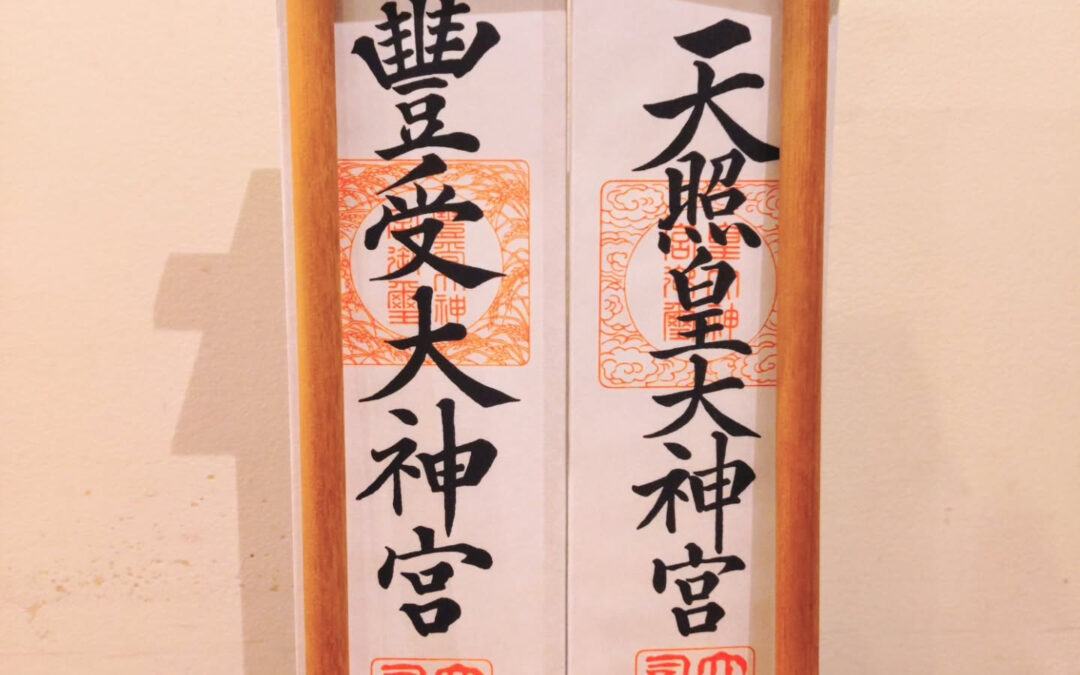 天照皇大神宮
豐受大神宮